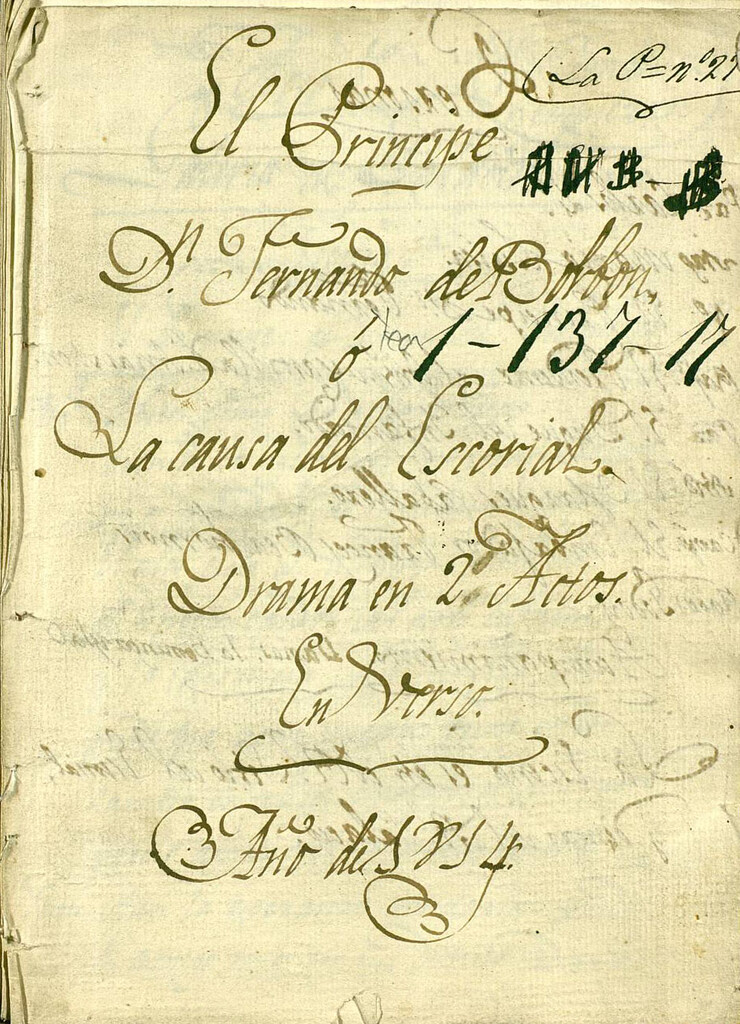 La P=nº. 27
El Principe
Dn. Fernando de Borbon,
ó
1-137-17
La causa del Escorial.
Drama en 2 Actos.
En Verso.
Año de 1814.